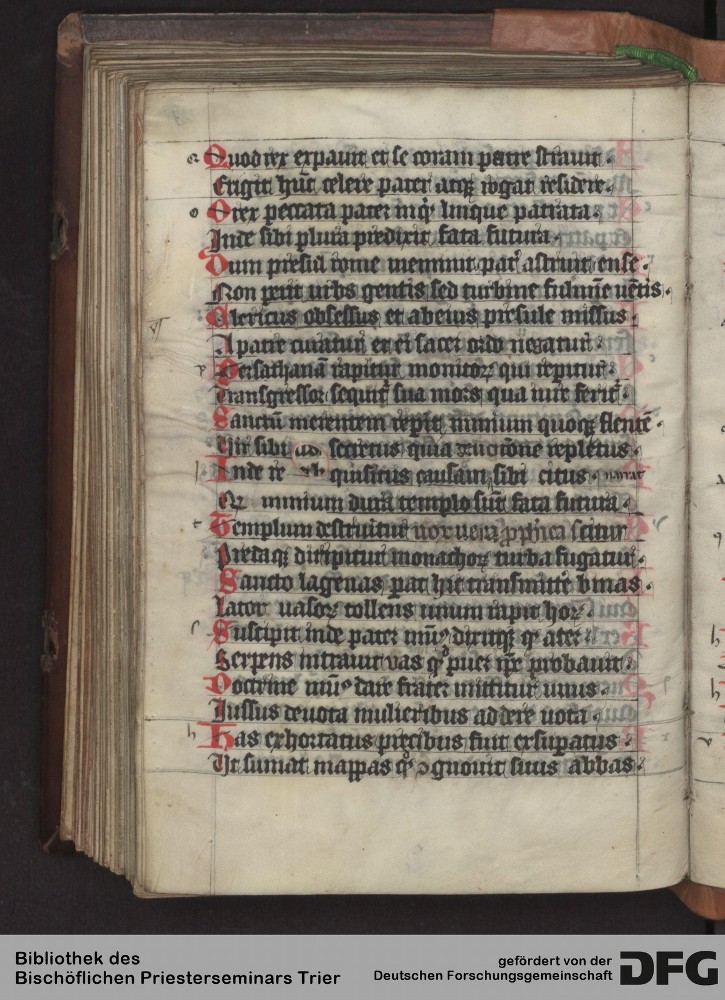 Quod rex expauit et se coram patre strauit.
Erigit hūc celere pater atq; rogat residere.
O rex peccata pater inqͥt linque patrata.
Inde sibi plura predixit fata futura.
Dum presul rome meminit patͬ astruit ense.
Non perit urbs gentis sed turbine fulmīe uētis.
Clericus obsessus et abeius presule missus.
A patre curatur et ei sacer ordo negatur.
Per sathanam rapitur qui
Transgressor sequitͬ sua mors qua iure feritͬ.
Sanctū merentem reperit nimium quoq; flentē
Vir sibi secretus quia repletus.
Inde re quisitus causam sibi citus narrat
nimium dura templo sūt fata futura.
Templum destruitur scitur
Predaq; diripitur monachoꝝ turba fugatur.
Sancto lagenas pat hic transmittere binas.
Lator uasoꝝ tollens unum rapit hoꝝ.
Suscipit inde pater
Serpens intrauit vas puer probauit.
Doctrine dare frater mittitur unus.
Iussus deuota mulieribus addere uota.
Has exhortatus precibus fuit exsuperatus.
Vt sumat mappas ꝙ ꝯgnouit suus abbas.
Bibliothek des
Bischöflichen Priesterseminars Trier
gefördert von der
Deutschen Forschungsgemeinschaft
DFG